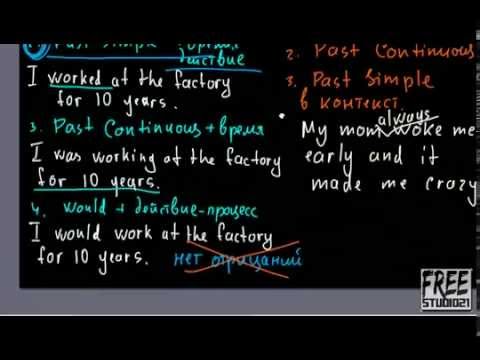 Past Simple время
действие
I worked at the factory
for 10 years.
3. Past Continuous + время
I was working at the factory
for 10 years.
4. would + действие-процесс
I would work at the factory
for 10 years. нет отрицаний
2. Past Continuous
3. Past Simple
в контекст.
always
My mom woke me
early and it
made me crazy
FREE
STUDIO21